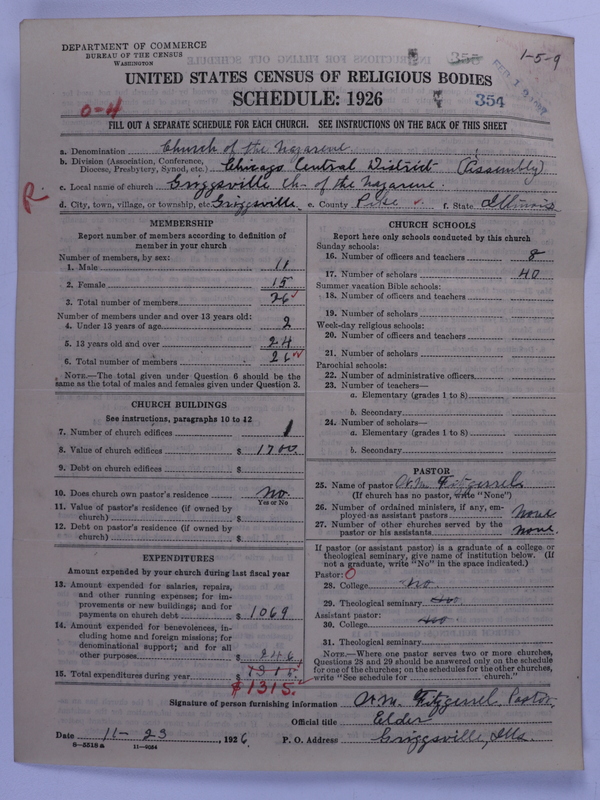 DEPARTMENT OF COMMERCE
BUREAU OF THE CENSUS
WASHINGTON
355
1-5-9
UNITED STATES CENSUS OF RELIGIOUS BODIES
SCHEDULE: 1926
354
0-4
FILL OUT A SEPARATE SCHEDULE FOR EACH CHURCH. SEE INSTRUCTIONS ON THE BACK OF THIS SHEET
a. Denomination Church of the Nazarene
b. Division (Association, Conference, Diocese, Presbytery, Synod, etc.) Chicago Central District (Assembly)
c. Local name of church Griggsville Ch- of the Nazarene.
R.
d. City, town, village, or township, etc Griggsville. e. County Pike f. State Illinois
MEMBERSHIP
Report number of members according to definition of member in your church
Number of members, by sex:
1. Male 11
2. Female 15
3. Total number of members 26
Number of members under and over 13 years old:
4. Under 13 years of age 2
5. 13 years old and over 24
6. Total number of members 26
NOTE.—The total given under Question 6 should be the same as the total of males and females given under Question 3.
CHURCH BUILDINGS
See instructions, paragraphs 10 to 12
7. Number of church edifices 1
8. Value of church edifices $ 1700
9. Debt on church edifices $
10. Does church own pastor's residence no.
Yes or No
11. Value of pastor's residence (if owned by church) $
12. Debt on pastor's residence (if owned by church) $
EXPENDITURES
Amount expended by your church during last fiscal year
13. Amount expended for salaries, repairs, and other running expenses; for improvements or new buildings; and for payments on church debt $ 1069
14. Amount expended for benevolences, including home and foreign missions; for denominational support; and for all other purposes $ 246
15. Total expenditures during year $
$1315.
CHURCH SCHOOLS
Report here only schools conducted by this church
Sunday schools:
16. Number of officers and teachers 8
17. Number of scholars 40
Summer vacation Bible schools:
18. Number of officers and teachers
19. Number of scholars
Week-day religious schools:
20. Number of officers and teachers
21. Number of scholars
Parochial schools:
22. Number of administrative officers
23. Number of teachers—
a. Elementary (grades 1 to 8)
b. Secondary
24. Number of scholars—
a. Elementary (grades 1 to 8)
b. Secondary
PASTOR
25. Name of pastor W.M. Fitzgerrel
(If church has no pastor, write "None")
26. Number of ordained ministers, if any, employed as assistant pastors none
27. Number of other churches served by the pastor or his assistants none.
If pastor (or assistant pastor) is a graduate of a college or theological seminary, give name of institution below. (If not a graduate, write "No" in the space indicated.)
Pastor: O
28. College no
29. Theological seminary no
Assistant pastor:
30. College no.
31. Theological seminary
NOTE.—Where one pastor serves two or more churches, Questions 28 and 29 should be answered only on the schedule for one of the churches; on the schedules for the other churches, write "See schedule for church."
Signature of person furnishing information W.M. Fitzgerrel, Pastor
Official title Elder
Date 11-23, 1926 P. O. Address Griggsville, Ills.
8-5518a 11-9084